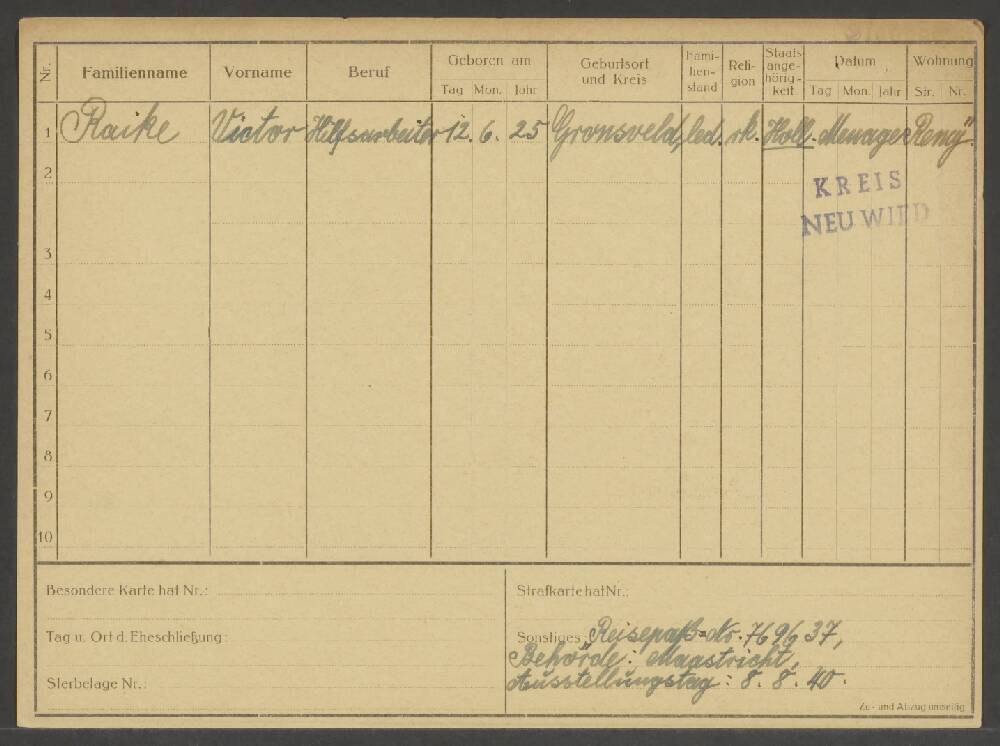 Nr. Familienname Vorname Beruf Geboren am Geburtsort und Kreis Fami- lien- stand Reli- gion Staats- ange- hörig- keit Datum Wohnung
Tag Mon. Jahr Tag Mon. Jahr Str. Nr.
1 Raike Victor Hilfsarbeiter 12. 6. 25 Gronsveld, led. rk. Holl. Menage "Remy"
KREIS
NEUWIED
2
3
4
5
6
7
8
9
10
Besondere Karte hat Nr.:
Tag u. Ort d. Eheschließung:
Sterbelage Nr.:
Strafkarte hat Nr.:
Sonstiges: Reisepaß-Nr. 769637,
Behörde: Maastricht,
Ausstellungstag: 8. 8. 40.
Zu- und Abzug umseitig